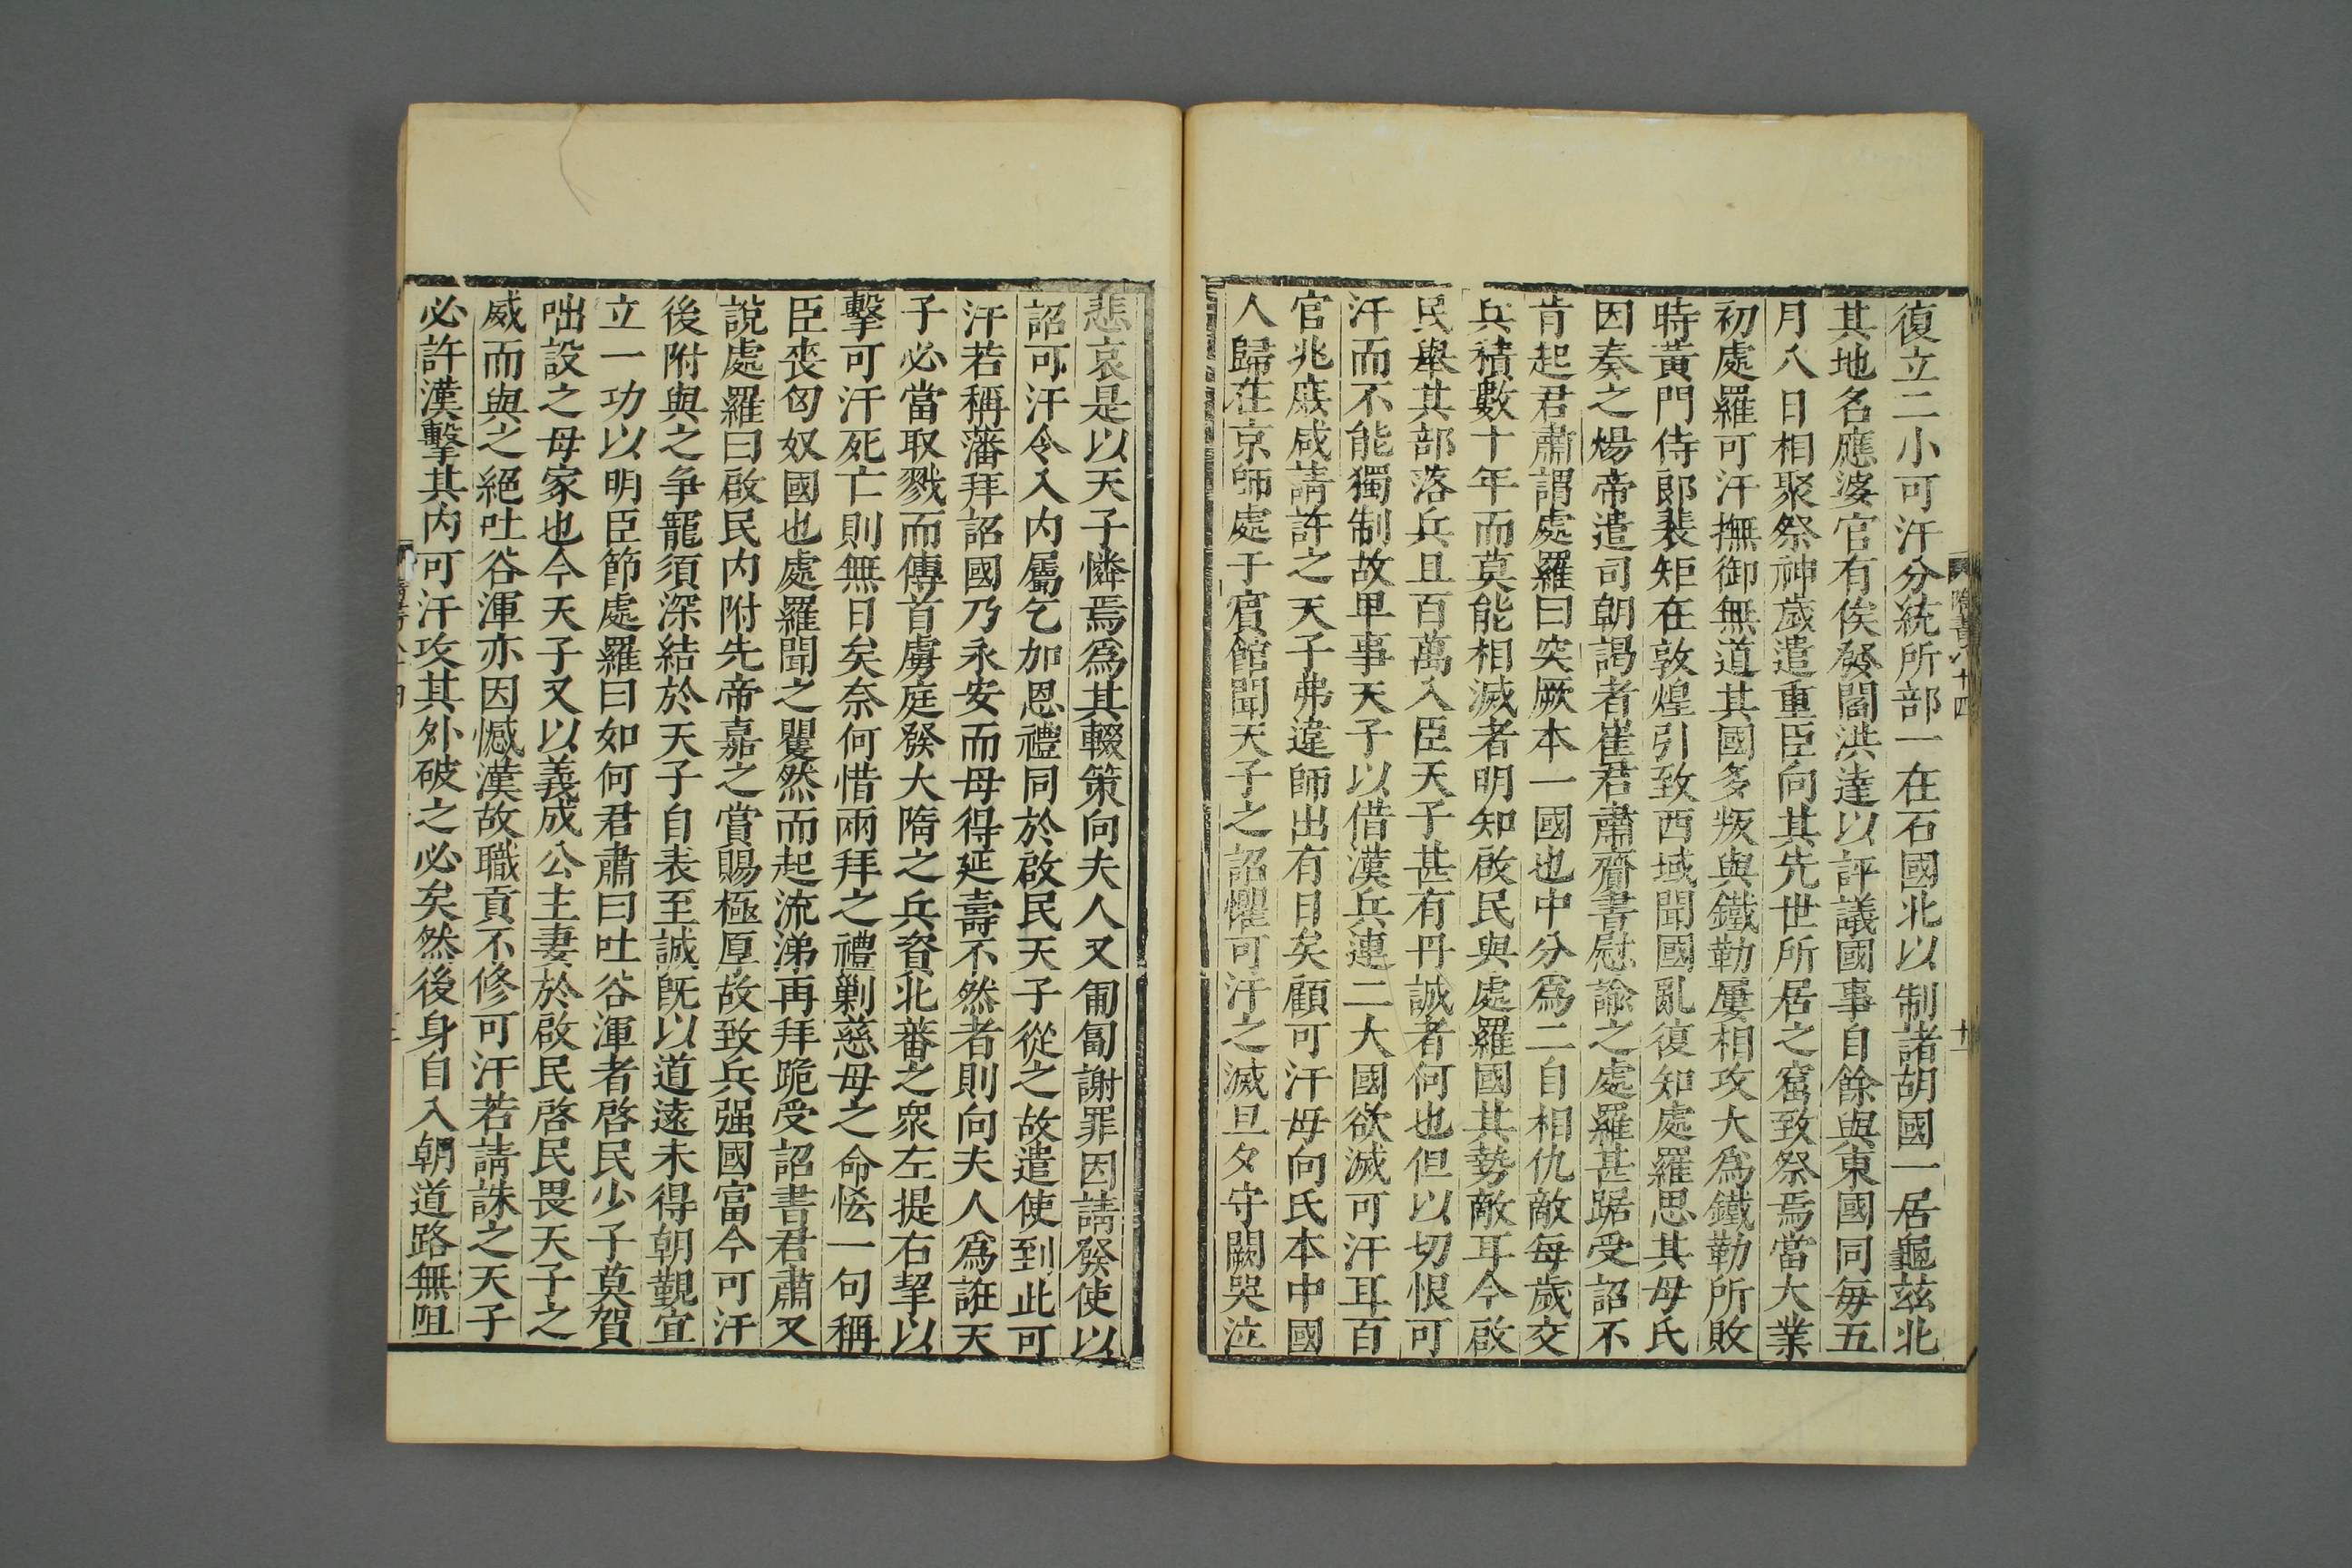 復立二小可汗分統所部一在石國北以制諸胡國一居龜茲北
其地名應婆官有俟發閻洪達以評議國事自餘與東國同每五
月八日相聚祭神歲遣重臣向其先世所居之窟致祭焉當大業
初處羅可汗撫御無道其國多叛與鐵勒屢相攻大爲鐵勒所敗
時黃門侍郎裴矩在敦煌引致西域聞國亂復知處羅思其母氏
因奏之煬帝遣司朝謁者崔君肅齎書慰諭之處羅甚踞受詔不
肯起君肅謂處羅曰突厥本一國也中分爲二自相仇敵每歲交
兵積數十年而莫能相滅者明知啟民與處羅國其勢敵耳今啟
民舉其部落兵且百萬入臣天子甚有丹誠者何也但以切恨可
汗而不能獨制故卑事天子以借漢兵連二大國欲滅可汗耳百
官兆庶咸請許之天子弗違師出有日矣顧可汗母向氏本中國
人歸在京師處于賓館聞天子之詔懼可汗之滅旦夕守闕哭泣
悲哀是以天子憐焉爲其輟策向夫人又匍匐謝罪因請發使以
詔可汗令入内屬乞加恩禮同於啟民天子從之故遣使到此可
汗若稱藩拜詔國乃永安而母得延壽不然者則向夫人爲誑天
子必當取戮而傳首虜庭發大隋之兵資北蕃之衆左提右挈以
擊可汗死亡則無日矣奈何惜兩拜之禮剿慈母之命恡一句稱
臣喪匈奴國也處羅聞之矍然而起流涕再拜跪受詔書君肅又
說處羅曰啟民内附先帝嘉之賞賜極厚故致兵强國富今可汗
後附與之争寵須深結於天子自表至誠既以道遠未得朝覲宜
立一功以明臣節處羅曰如何君肅曰吐谷渾者啓民少子莫賀
咄設之母家也今天子又以義成公主妻於啟民啓民畏天子之
威而與之絕吐谷渾亦因憾漢故職貢不修可汗若請誅之天子
必許漢擊其内可汗攻其外破之必矣然後身自入朝道路無阻
隋書八十四